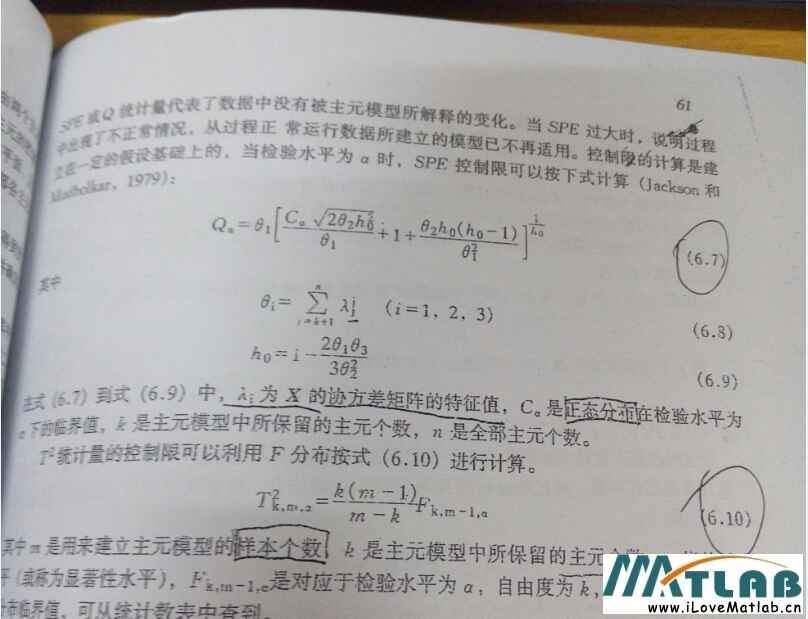 61
SPE 或 Q 统计量代表了数据中没有被主元模型所解释的变化。当 SPE 过大时，说明过程
中出现了不正常情况，从过程正 常运行数据所建立的模型已不再适用。控制限的计算是建
立在一定的假设基础上的，当检验水平为 α 时，SPE 控制限可以按下式计算（Jackson 和
Mudholkar，1979）：
Qα = θ1[Cα√(2θ2h0²)/θ1 + 1 + θ2h0(h0-1)/θ1²]^(1/h0) (6.7)
其中
θi = Σ(i=k+1→n) λj^i (i=1，2，3) (6.8)
h0 = i - 2θ1θ3/3θ2² (6.9)
在式 (6.7) 到式 (6.9) 中，λi 为 X 的协方差矩阵的特征值，Cα 是正态分布在检验水平为
α 下的临界值，k 是主元模型中所保留的主元个数，n 是全部主元个数。
T² 统计量的控制限可以利用 F 分布按式（6.10）进行计算。
T²k,m,α = k(m-1)/(m-k) Fk,m-1,α (6.10)
其中 m 是用来建立主元模型的样本个数，k 是主元模型中所保留的主元个数
平（或称为显著性水平），Fk,m-1,α 是对应于检验水平为 α，自由度为 k,
临界值，可从统计数表中查到。
MATLAB
www.iLoveMatlab.cn